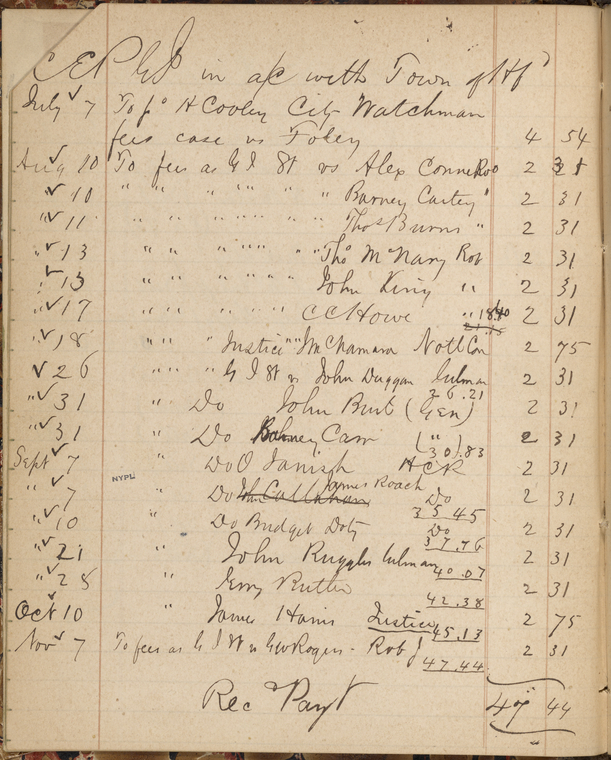 in a/c with Town of Hf
July 7 To H Cooley City Watchman
fees case vs Foley 4 54
Aug 10 To fees as G I St vs Alex Conne Rob 2 31
" 10 " " " " " " Barney Cartey " 2 31
" 11 " " " " " " Thos Burns " 2 31
" 13 " " " " " " Tho McNary Rob 2 31
" 13 " " " " " John King " 2 31
" 17 " " " " " C C Howe " 18.40 2 31
21.15
" 18 " " Justice " " McNamara Nott Con 2 75
" 26 " " G I St vs John Duggan Culman 2 31
26.21
" 31 " Do John Burb (Gen) 2 31
" 31 " Do Barney Carr (") 2 31
30.83
Sept 7 " Do O Janisgh HCR 2 31
James Roach
" 7 " Do Wm Callahan Do 2 31
35.45
" 10 Do Budget Doty Do 2 31
37.76
" 21 " John Ruggles Culman 2 31
40.07
" 28 " Butler 2 31
42.38
Oct 10 " James Harris Justice 2 75
45.13
Nov 7 To fees as G I St vs Geo Rogers - Rob 2 31
47.44
Rec Payt 47 44
NYPL